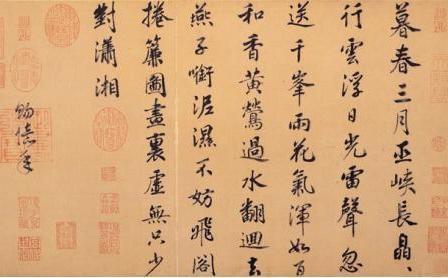 暮春三月巫峽長晶〻
行雲浮日光雷聲忽
送千峯雨花氣渾如百
和香黃鶯過水翻迴去
燕子銜泥濕不妨飛閣
捲簾圖畫裏虛無只少
對瀟湘